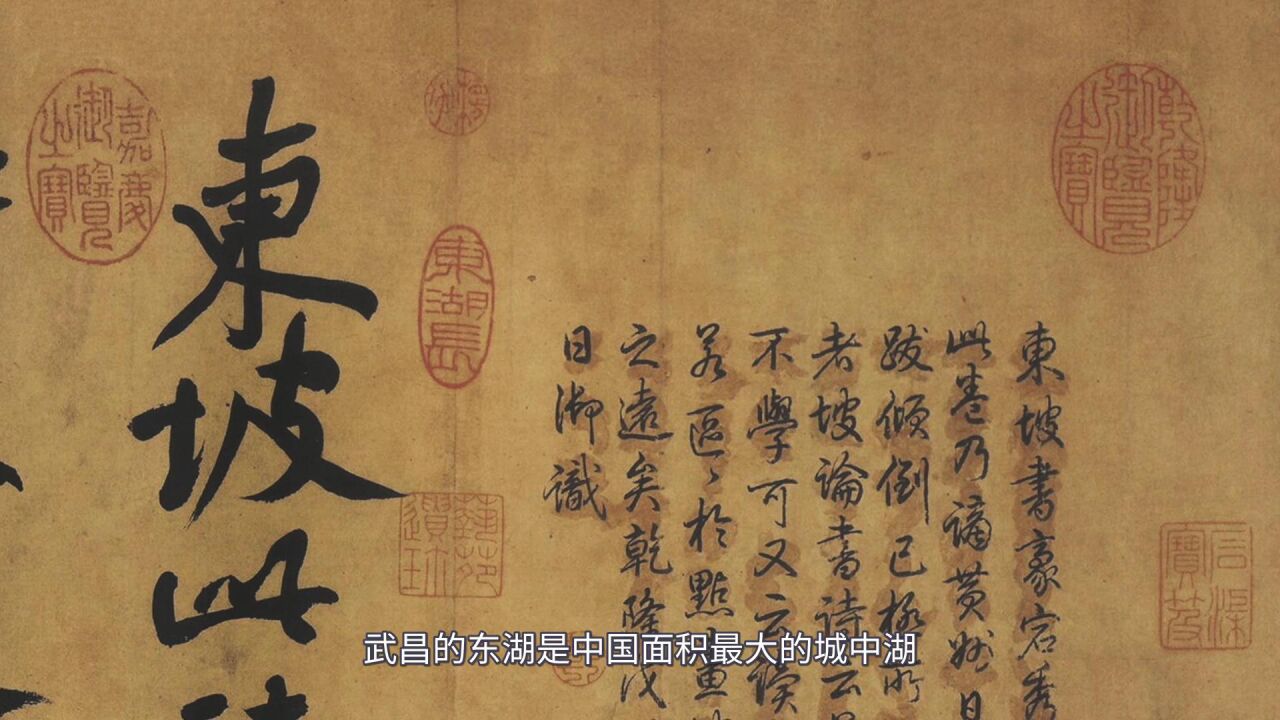 東坡書豪宕秀
此卷乃謫黃州日
跋傾倒已極所
者坡論書詩云
不學可又云讀
若區〻於點畫
之遠矣乾隆戊
日御識
乾隆御覽之寶
東湖長
嘉慶御覽之寶
藝苑遺珍
東坡此詩
武昌的东湖是中国面积最大的城中湖